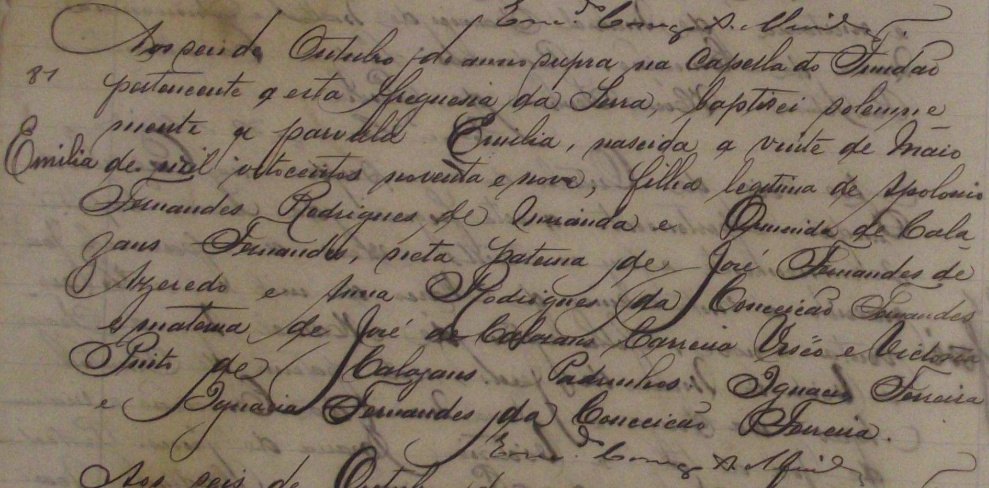 Aos seis de Outubro do anno supra na Capella do Fundão
87
pertencente a esta Freguesia da Serra, baptisei solemne
mente a parvula Emilia, nascida a vinte de Maio
Emilia
de mil oitocentos noventa e nove, filha legitima de Apolonio
Fernandes Rodrigues de Miranda e de Cala
zans Fernandes, neta paterna de José Fernandes de
Azeredo e Anna Rodrigues da Conceicão Fernandes
e materna de José de Calasans Correia e Victoria
Pinto de Calazans Padrinhos: Ignacio Ferreira
e Ignacia Fernandes da Conceicão Ferreira.
Aos seis de Outub